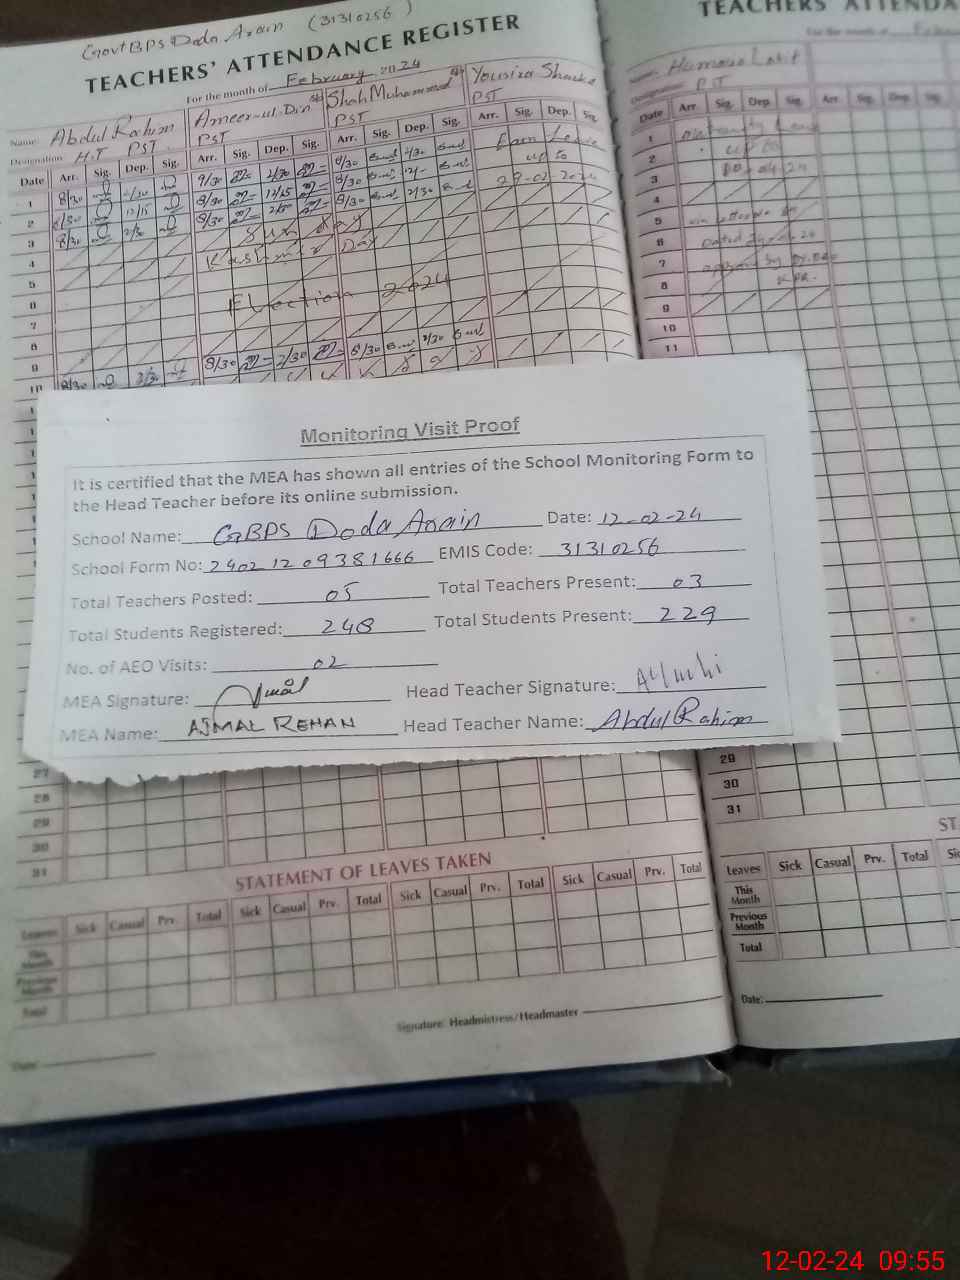 Govt BPS Doda Arain (31310256)
TEACHERS' ATTENDANCE REGISTER
For the month of February 2024
Name: Abdul Rahim Ameer-ul-Din Shah Muhammad
Designation H.T PST PST PST PST
Date Arr. Sig. Dep. Sig. Arr. Sig. Dep. Sig. Arr. Sig. Dep. Sig. Arr. Sig. Dep. Sig.
1 8/30 2/30 2/30 8/30 2/30 Earn Leave
2 8/30 12/15 8/30 12/15 8/30 up to
3 8/30 2/30 8/30 8/30 2/30 29-02-2024
4 Sun Day
5 Kashmir Day
6
7 Election 2024
8
9
10 8/30 2/30 8/30 2/30 8/30 2/30
Monitoring Visit Proof
It is certified that the MEA has shown all entries of the School Monitoring Form to
the Head Teacher before its online submission.
School Name: GBPS Doda Arain Date: 12-02-24
School Form No: 24021209381666 EMIS Code: 31310256
Total Teachers Posted: 05 Total Teachers Present: 03
Total Students Registered: 248 Total Students Present: 229
No. of AEO Visits: 02
MEA Signature: Head Teacher Signature:
MEA Name: AJMAL REHAN Head Teacher Name: Abdul Rahim
27
28
29
30
31
STATEMENT OF LEAVES TAKEN
Leaves Sick Casual Prv. Total Sick Casual Prv. Total Sick Casual Prv. Total Sick Casual Prv. Total
This Month
Previous Month
Total
Signature: Headmistress/Headmaster
Date:
TEACHERS' ATTENDA
For the month of
Name:
Designation: PST
Date Arr. Sig. Dep. Sig. Arr. Sig. Dep. Sig.
1
2 up to
3
4
5
6
7
8
9
10
11
29
30
31
ST
Leaves Sick Casual Prv. Total
This Month
Previous Month
Total
Date:
12-02-24 09:55